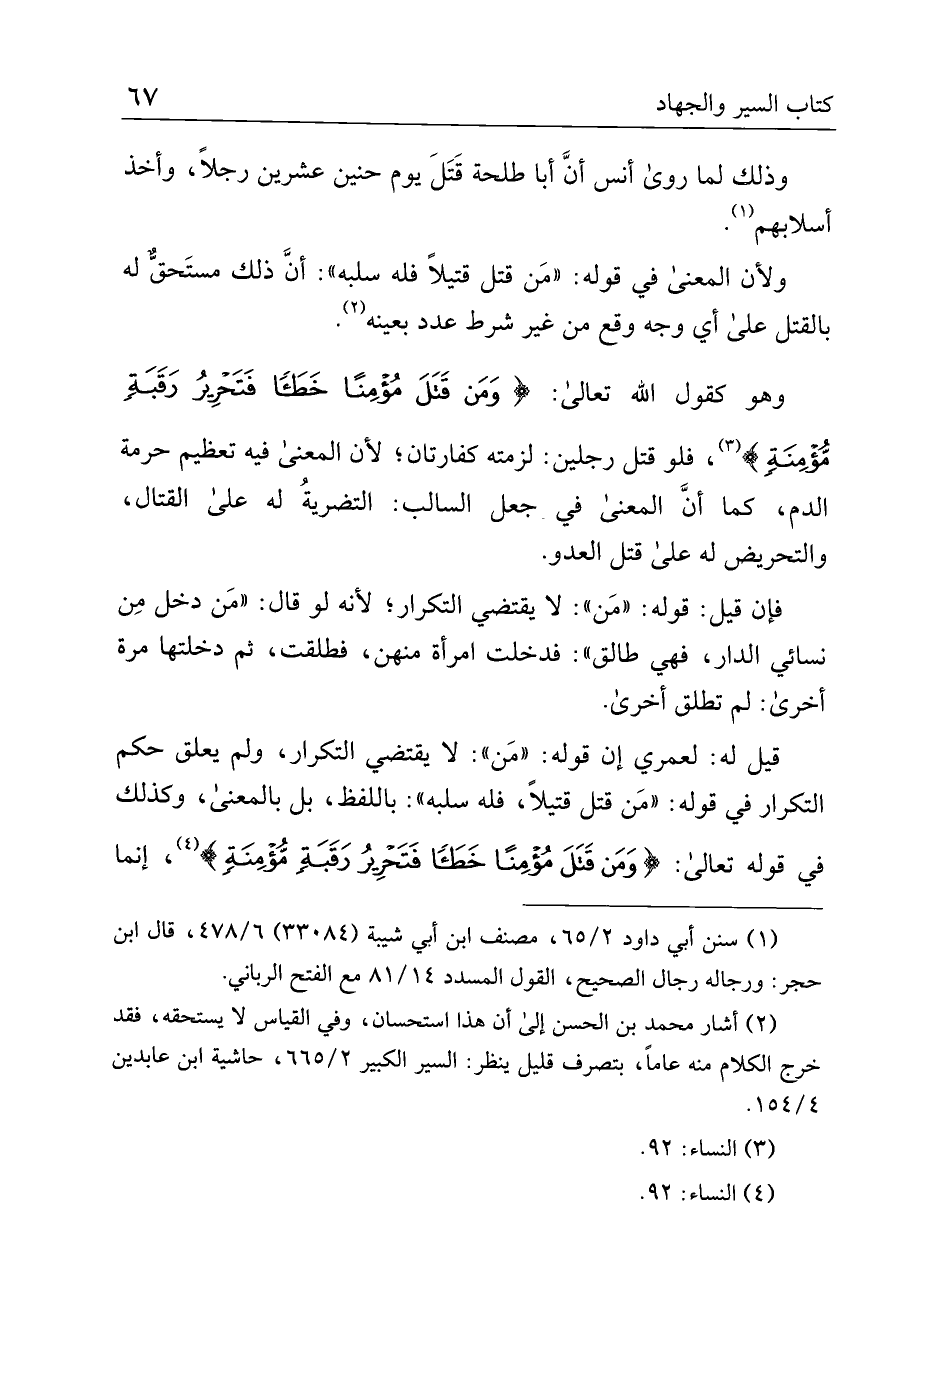 كتاب السير والجهاد ٦٧
وذلك لما روىٰ أنس أنَّ أبا طلحة قَتَلَ يوم حنين عشرين رجلاً، وأخذ
أسلابهم(١).
ولأن المعنىٰ في قوله: «مَن قتل قتيلاً فله سلبه»: أنَّ ذلك مستَحقٌّ له
بالقتل علىٰ أي وجه وقع من غير شرط عدد بعينه(٢).
وهو كقول الله تعالىٰ: ﴿ وَمَن قَتَلَ مُؤْمِنًا خَطَـًٔا فَتَحْرِيرُ رَقَبَةٍ
مُّؤْمِنَةٍ ﴾(٣)، فلو قتل رجلين: لزمته كفارتان؛ لأن المعنىٰ فيه تعظيم حرمة
الدم، كما أنَّ المعنىٰ في جعل السالب: التضريةُ له علىٰ القتال،
والتحريض له علىٰ قتل العدو.
فإن قيل: قوله: «مَن»: لا يقتضي التكرار؛ لأنه لو قال: «مَن دخل مِن
نسائي الدار، فهي طالق»: فدخلت امرأة منهن، فطلقت، ثم دخلتها مرة
أخرىٰ: لم تطلق أخرىٰ.
قيل له: لعمري إن قوله: «مَن»: لا يقتضي التكرار، ولم يعلق حكم
التكرار في قوله: «مَن قتل قتيلاً، فله سلبه»: باللفظ، بل بالمعنىٰ، وكذلك
في قوله تعالىٰ: ﴿ وَمَن قَتَلَ مُؤْمِنًا خَطَـًٔا فَتَحْرِيرُ رَقَبَةٍ مُّؤْمِنَةٍ ﴾(٤)، إنما
(١) سنن أبي داود ٦٥/٢، مصنف ابن أبي شيبة (٣٣٠٨٤) ٤٧٨/٦، قال ابن
حجر: ورجاله رجال الصحيح، القول المسدد ٨١/١٤ مع الفتح الرباني.
(٢) أشار محمد بن الحسن إلىٰ أن هذا استحسان، وفي القياس لا يستحقه، فقد
خرج الكلام منه عاماً، بتصرف قليل ينظر: السير الكبير ٦٦٥/٢، حاشية ابن عابدين
١٥٤/٤.
(٣) النساء: ٩٢.
(٤) النساء: ٩٢.